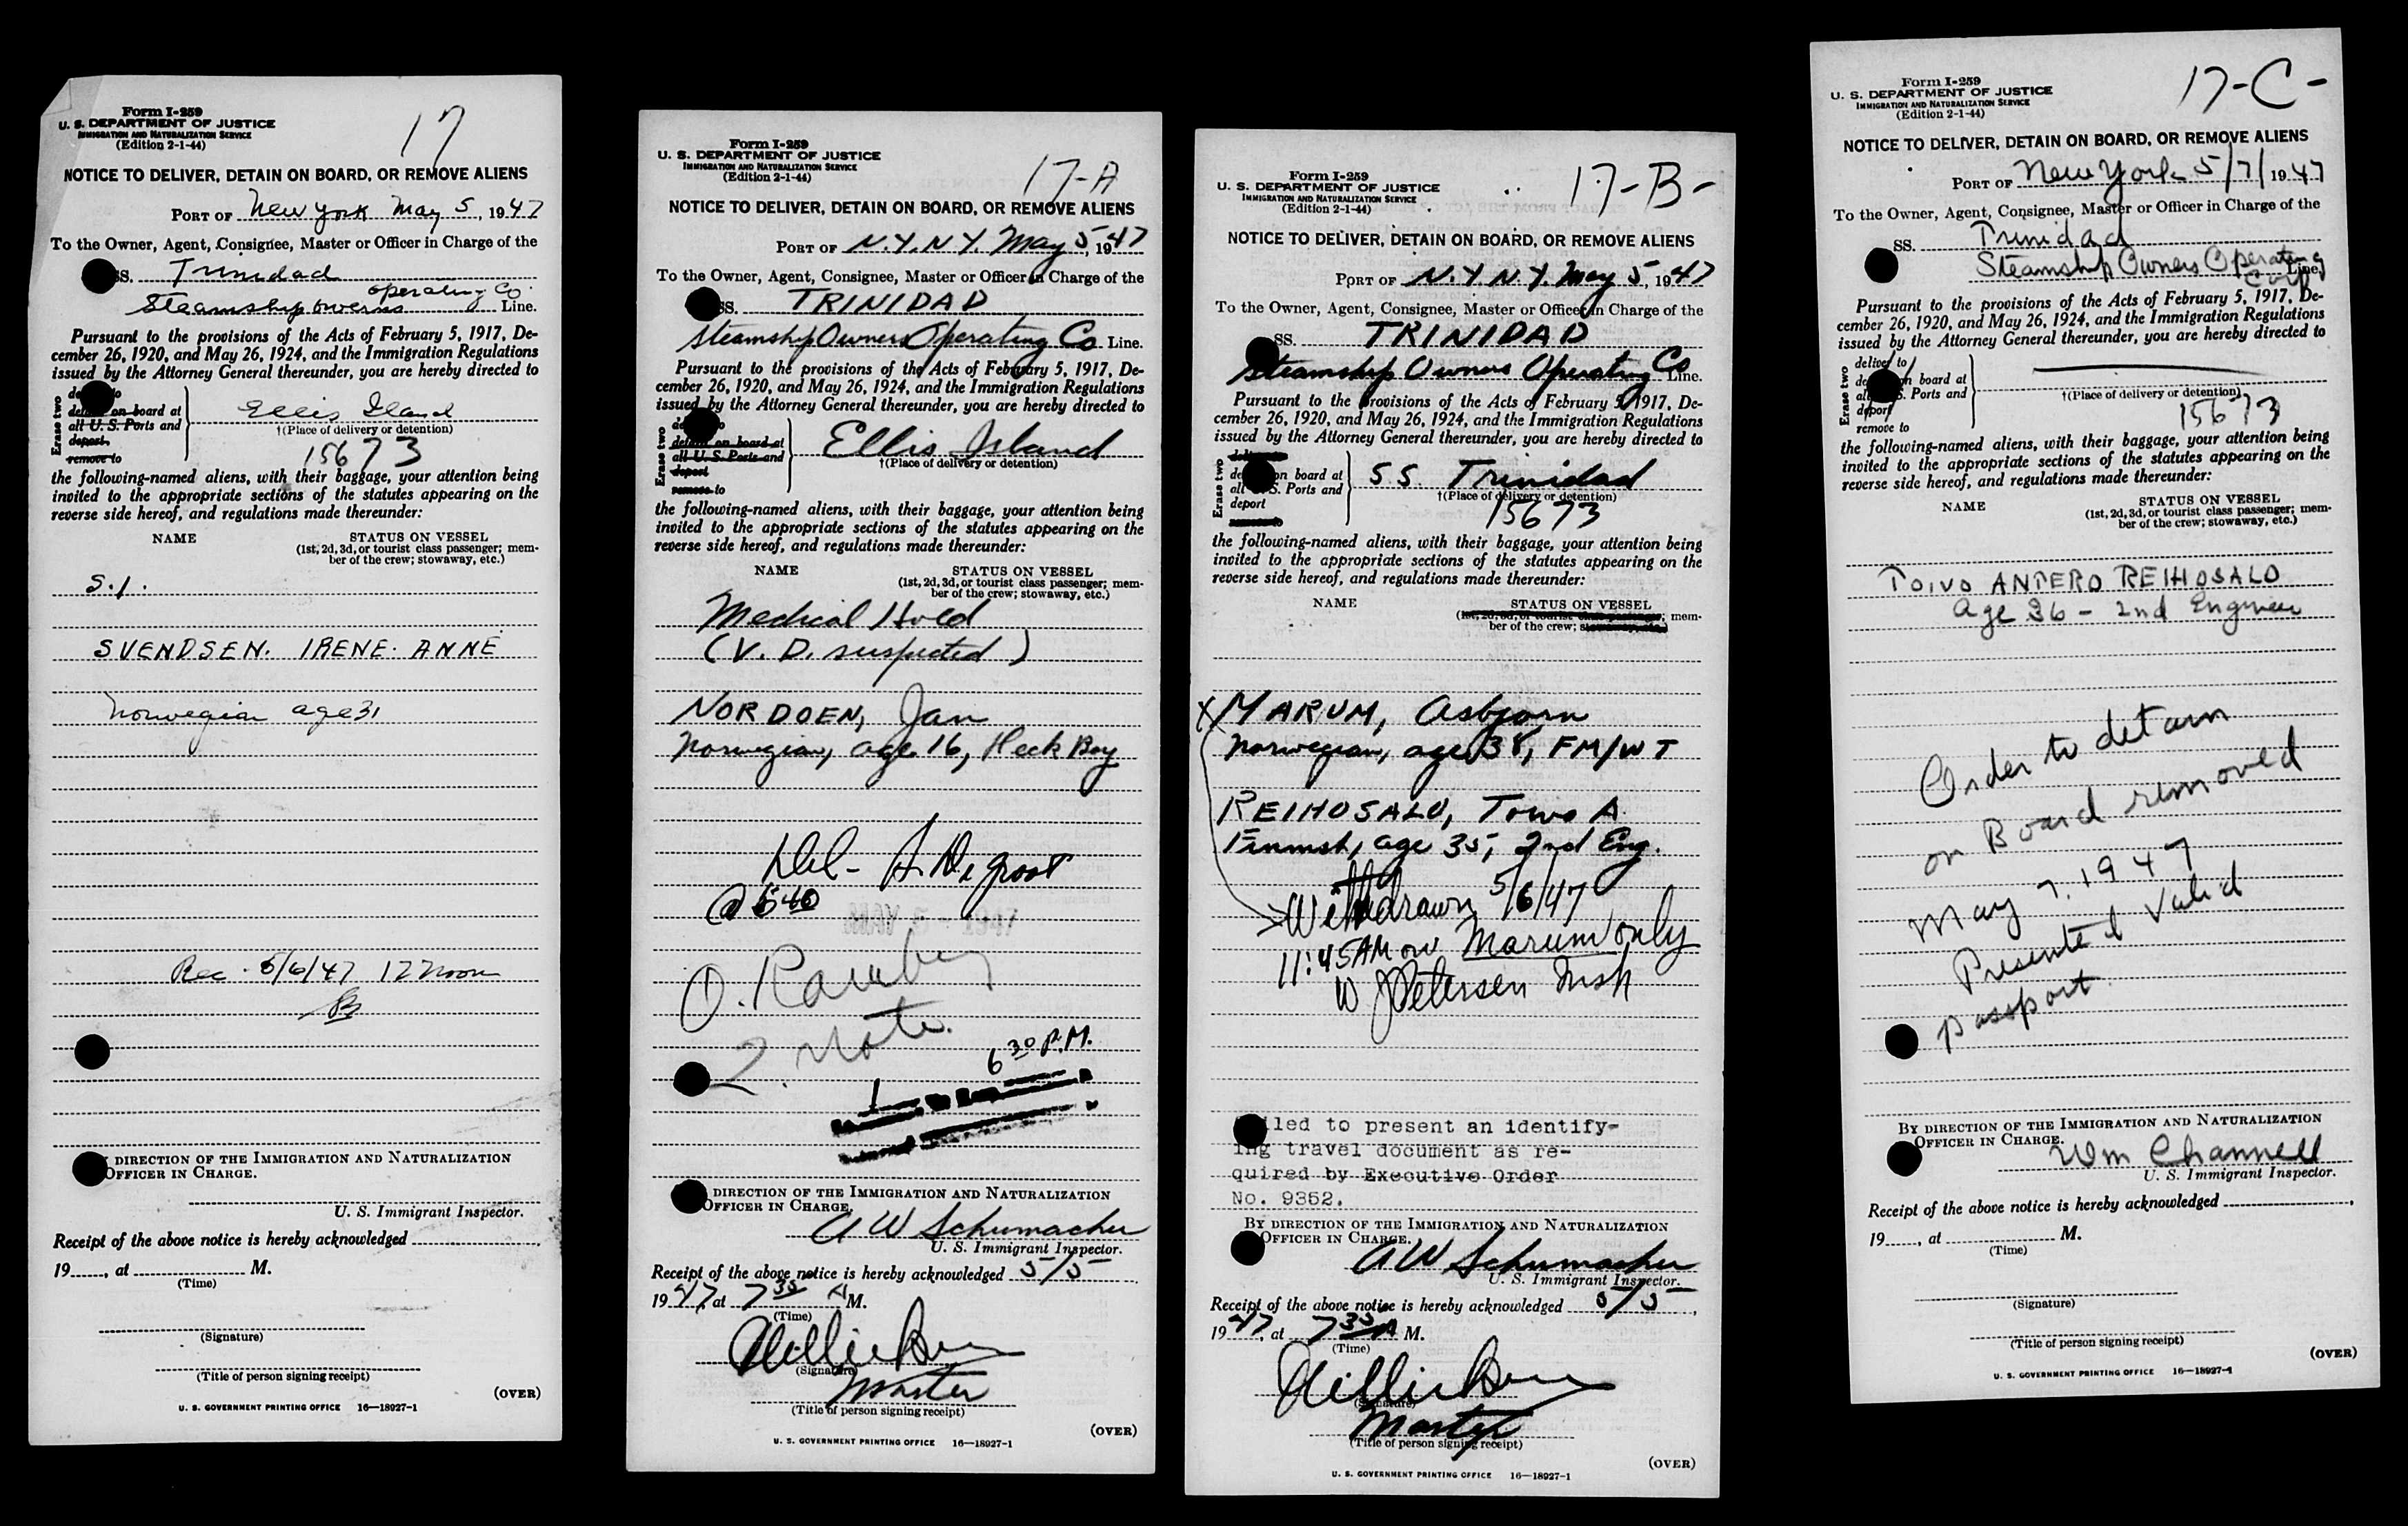 Form I-259
U. S. DEPARTMENT OF JUSTICE
IMMIGRATION AND NATURALIZATION SERVICE
(Edition 2-1-44)
17
NOTICE TO DELIVER, DETAIN ON BOARD, OR REMOVE ALIENS
PORT OF New York May 5, 1947
To the Owner, Agent, Consignee, Master or Officer in Charge of the
SS. Trinidad
Steamship owerns operating Co. Line.
Pursuant to the provisions of the Acts of February 5, 1917, De-
cember 26, 1920, and May 26, 1924, and the Immigration Regulations
issued by the Attorney General thereunder, you are hereby directed to
Erase two
detain on board at
all U. S. Ports and
deport
remove to
Ellis Iland
†(Place of delivery or detention)
15673
the following-named aliens, with their baggage, your attention being
invited to the appropriate sections of the statutes appearing on the
reverse side hereof, and regulations made thereunder:
NAME STATUS ON VESSEL
(1st, 2d, 3d, or tourist class passenger; mem-
ber of the crew; stowaway, etc.)
S.I.
SVENDSEN. IRENE. ANNE
Norwegian age 31
Rec. 5/6/47 12 Noon
DIRECTION OF THE IMMIGRATION AND NATURALIZATION
OFFICER IN CHARGE.
U. S. Immigrant Inspector.
Receipt of the above notice is hereby acknowledged
19, at M.
(Time)
(Signature)
(Title of person signing receipt)
(OVER)
U. S. GOVERNMENT PRINTING OFFICE 16—18927-1
Form I-259
U. S. DEPARTMENT OF JUSTICE
IMMIGRATION AND NATURALIZATION SERVICE
(Edition 2-1-44)
17-A
NOTICE TO DELIVER, DETAIN ON BOARD, OR REMOVE ALIENS
PORT OF N.Y. N.Y. May 5, 1947
To the Owner, Agent, Consignee, Master or Officer in Charge of the
SS. TRINIDAD
Steamship Owners Operating Co Line.
Pursuant to the provisions of the Acts of February 5, 1917, De-
cember 26, 1920, and May 26, 1924, and the Immigration Regulations
issued by the Attorney General thereunder, you are hereby directed to
Erase two
detain on board at
all U. S. Ports and
deport
remove to
Ellis Island
†(Place of delivery or detention)
the following-named aliens, with their baggage, your attention being
invited to the appropriate sections of the statutes appearing on the
reverse side hereof, and regulations made thereunder:
NAME STATUS ON VESSEL
(1st, 2d, 3d, or tourist class passenger; mem-
ber of the crew; stowaway, etc.)
Medical Hold
(V. D. suspected)
NORDOEN, Jan
Norwegian, age 16, Deck Boy
Del-
@ 540
2.
6 30 P.M.
DIRECTION OF THE IMMIGRATION AND NATURALIZATION
OFFICER IN CHARGE.
A W Schumacher
U. S. Immigrant Inspector.
Receipt of the above notice is hereby acknowledged 5/5
1947, at 7 35 A M.
(Time)
(Signature)
Master
(Title of person signing receipt)
(OVER)
U. S. GOVERNMENT PRINTING OFFICE 16—18927-1
Form I-259
U. S. DEPARTMENT OF JUSTICE
IMMIGRATION AND NATURALIZATION SERVICE
(Edition 2-1-44)
17-B-
NOTICE TO DELIVER, DETAIN ON BOARD, OR REMOVE ALIENS
PORT OF N.Y. N.Y. May 5, 1947
To the Owner, Agent, Consignee, Master or Officer in Charge of the
SS. TRINIDAD
Steamship Owners Operating Co Line.
Pursuant to the provisions of the Acts of February 5, 1917, De-
cember 26, 1920, and May 26, 1924, and the Immigration Regulations
issued by the Attorney General thereunder, you are hereby directed to
Erase two
on board at
all U. S. Ports and
deport
S S. Trinidad
†(Place of delivery or detention)
15673
the following-named aliens, with their baggage, your attention being
invited to the appropriate sections of the statutes appearing on the
reverse side hereof, and regulations made thereunder:
NAME STATUS ON VESSEL
mem-
ber of the crew;
X MARUM, Asbjorn
Norwegian, age 38, FM/WT
REIHOSALO, Toivo A.
Finnish, age 35, 2nd Eng.
Withdrawn 5/6/47
11:45AM on Marum only
W J Petersen Insp
led to present an identify-
ing travel document as re-
quired by Executive Order
No. 9352.
BY DIRECTION OF THE IMMIGRATION AND NATURALIZATION
OFFICER IN CHARGE.
A W Schumacher
U. S. Immigrant Inspector.
Receipt of the above notice is hereby acknowledged 5/5
1947, at 7 35 A M.
(Time)
(Signature)
Master
(Title of person signing receipt)
(OVER)
U. S. GOVERNMENT PRINTING OFFICE 16—18927-1
Form I-259
U. S. DEPARTMENT OF JUSTICE
IMMIGRATION AND NATURALIZATION SERVICE
(Edition 2-1-44)
17-C-
NOTICE TO DELIVER, DETAIN ON BOARD, OR REMOVE ALIENS
PORT OF New York 5/7/1947
To the Owner, Agent, Consignee, Master or Officer in Charge of the
SS. Trinidad
Steamship Owners Operating Corp Line,
Pursuant to the provisions of the Acts of February 5, 1917, De-
cember 26, 1920, and May 26, 1924, and the Immigration Regulations
issued by the Attorney General thereunder, you are hereby directed to
Erase two
deliver to
on board at
all U. S. Ports and
deport
remove to
†(Place of delivery or detention)
15673
the following-named aliens, with their baggage, your attention being
invited to the appropriate sections of the statutes appearing on the
reverse side hereof, and regulations made thereunder:
NAME STATUS ON VESSEL
(1st, 2d, 3d, or tourist class passenger; mem-
ber of the crew; stowaway, etc.)
TOIVO ANTERO REIHOSALO
Age 36 - 2nd Engineer
Order to detain
on Board removed
May 7, 1947
Presented Valid
passport.
BY DIRECTION OF THE IMMIGRATION AND NATURALIZATION
OFFICER IN CHARGE.
Wm Channell
U. S. Immigrant Inspector.
Receipt of the above notice is hereby acknowledged
19, at M.
(Time)
(Signature)
(Title of person signing receipt)
(OVER)
U. S. GOVERNMENT PRINTING OFFICE 16—18927-1